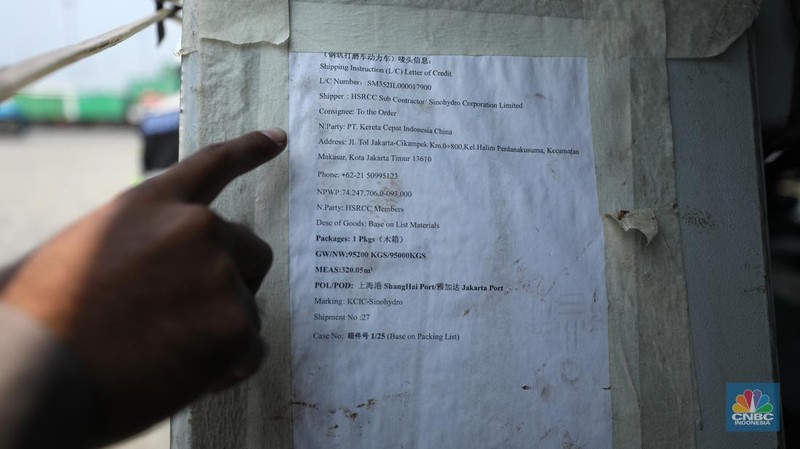 (钢轨打磨车动力车)唛头信息:
Shipping Instruction (L/C) Letter of Credit
L/C Number: SM352IL000017900
Shipper : HSRCC Sub Contractor: Sinohydro Corporation Limited
Consignee: To the Order
N.Party: PT. Kereta Cepat Indonesia China
Address: Jl. Tol Jakarta-Cikampek Km.0+800,Kel.Halim Perdanakusuma, Kecamatan
Makasar, Kota Jakarta Timur 13610
Phone: +62-21 50995123
NPWP:74.247.706.0-093.000
N.Party: HSRCC Members
Desc of Goods: Base on List Materials
Packages: 1 Pkgs (木箱)
GW/NW:95200 KGS/95000KGS
MEAS:320.05m³
POL/POD: 上海港 ShangHai Port/雅加达 Jakarta Port
Marking: KCIC-Sinohydro
Shipment No :27
Case No: 箱件号 1/25 (Base on Packing List)
CNBC
INDONESIA